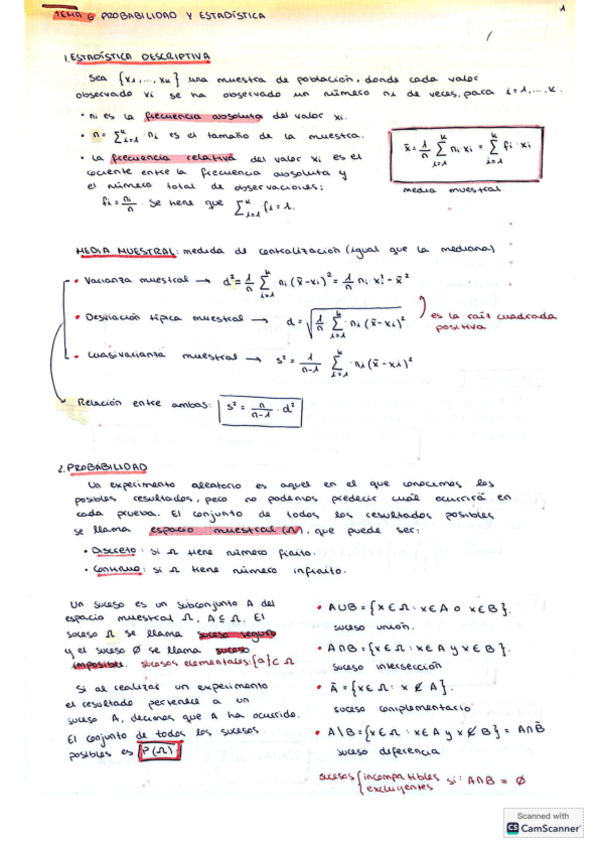 TEMA 6 PROBABILIDAD Y ESTADÍSTICA
1
1. ESTADÍSTICA DESCRIPTIVA
Sea {x₁,...,xₖ} una muestra de población, donde cada valor
observado xi se ha observado un número ni de veces, para i=1,...,k.
• ni es la frecuencia absoluta del valor xi.
• n = Σᵢ₌₁ᵏ · ni es el tamaño de la muestra.
• La frecuencia relativa del valor xi es el
cociente entre la frecuencia absoluta y
el número total de observaciones:
fi = ni/n. Se tiene que Σᵢ₌₁ᵏ fi = 1.
x̄ = 1/n Σᵢ₌₁ᵏ ni xi = Σᵢ₌₁ᵏ fi · xi
media muestral
MEDIA MUESTRAL: medida de centralización (igual que la mediana)
• Varianza muestral → d² = 1/n Σᵢ₌₁ᵏ ni (x̄-xi)² = 1/n ni xi² - x̄²
• Desviación típica muestral → d = √(1/n Σᵢ₌₁ᵏ · ni (x̄-xi)²)
es la raíz cuadrada
positiva
• Cuasivarianza muestral → s² = 1/(n-1) Σᵢ₌₁ᵏ · ni (x̄-xi)²
Relación entre ambas: s² = n/(n-1) · d²
2. PROBABILIDAD
Un experimento aleatorio es aquel en el que conocemos los
posibles resultados, pero no podemos predecir cuál ocurrirá en
cada prueba. El conjunto de todos los resultados posibles
se llama espacio muestral (Ω), que puede ser:
• Discreto: si Ω tiene número finito.
• Continuo: si Ω tiene número infinito.
Un suceso es un subconjunto A del
espacio muestral Ω, A⊆Ω. El
suceso Ω se llama suceso seguro
y el suceso ∅ se llama suceso
imposible. sucesos elementales: {a}⊂Ω
Si al realizar un experimento
el resultado pertenece a un
suceso A, decimos que A ha ocurrido.
El conjunto de todos los sucesos
posibles es P(Ω)
• A∪B = {x∈Ω: x∈A o x∈B}.
suceso unión.
• A∩B = {x∈Ω: x∈A y x∈B}.
suceso intersección
• Ā = {x∈Ω: x∉A}.
suceso complementario
• A\B = {x∈Ω: x∈A y x∉B} = A∩B̄
suceso diferencia
sucesos { incompatibles
excluyentes si: A∩B = ∅
Scanned with
CS CamScanner